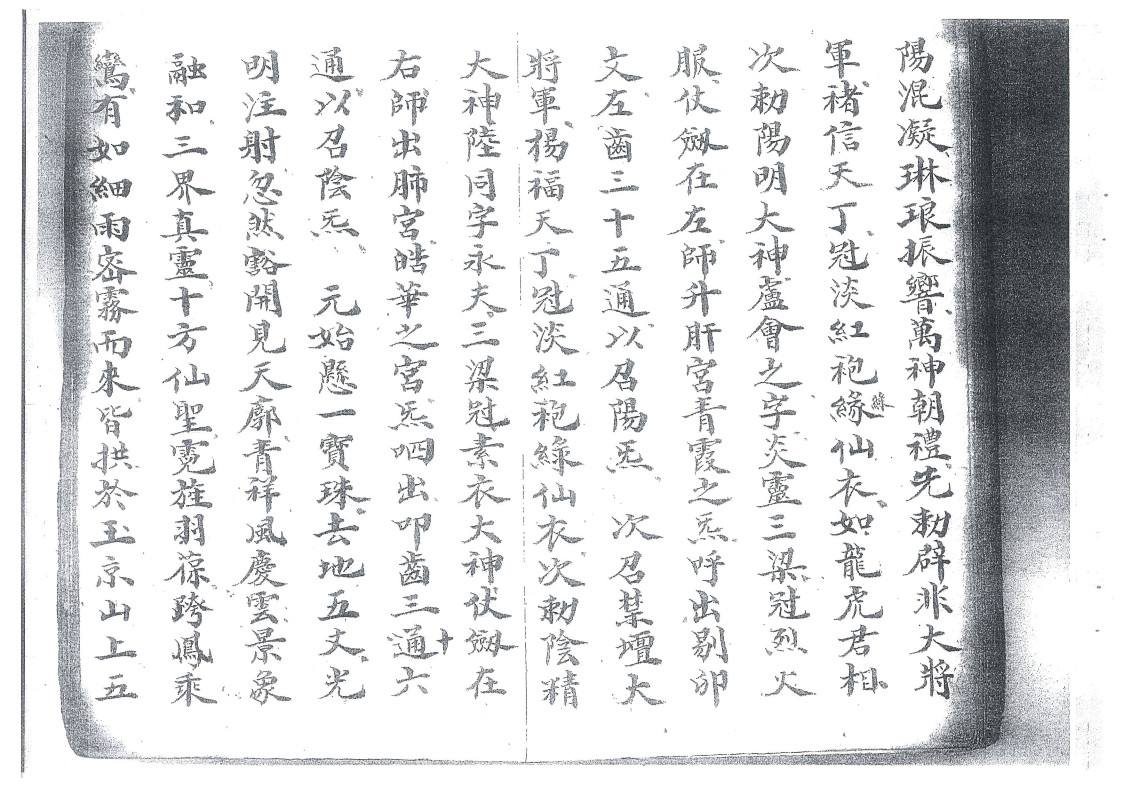 陽混凝琳琅振響萬神朝禮先勅辟非大將
軍褚信天丁冠淡紅袍緣綠仙衣如龍虎君相
次勅陽明大神盧會之字炎靈三梁冠烈火
服仗劔在左師升肝宮青霞之炁呼出剔卯
文左齒三十五通以召陽炁 次召禁壇大
將軍楊福天丁冠淡紅袍綠仙衣次勅陰精
大神陸同字永夫三梁冠素衣大神仗劔在
右師出肺宮皓華之宮炁呬出叩齒三十通六
通以召陰炁 元始懸一寶珠去地五丈光
明注射忽然豁開見天廓青祥風慶雲景象
融和三界真靈十方仙聖霓旌羽葆跨鳳乘
鸞有如細雨密霧而來皆拱於玉京山上五